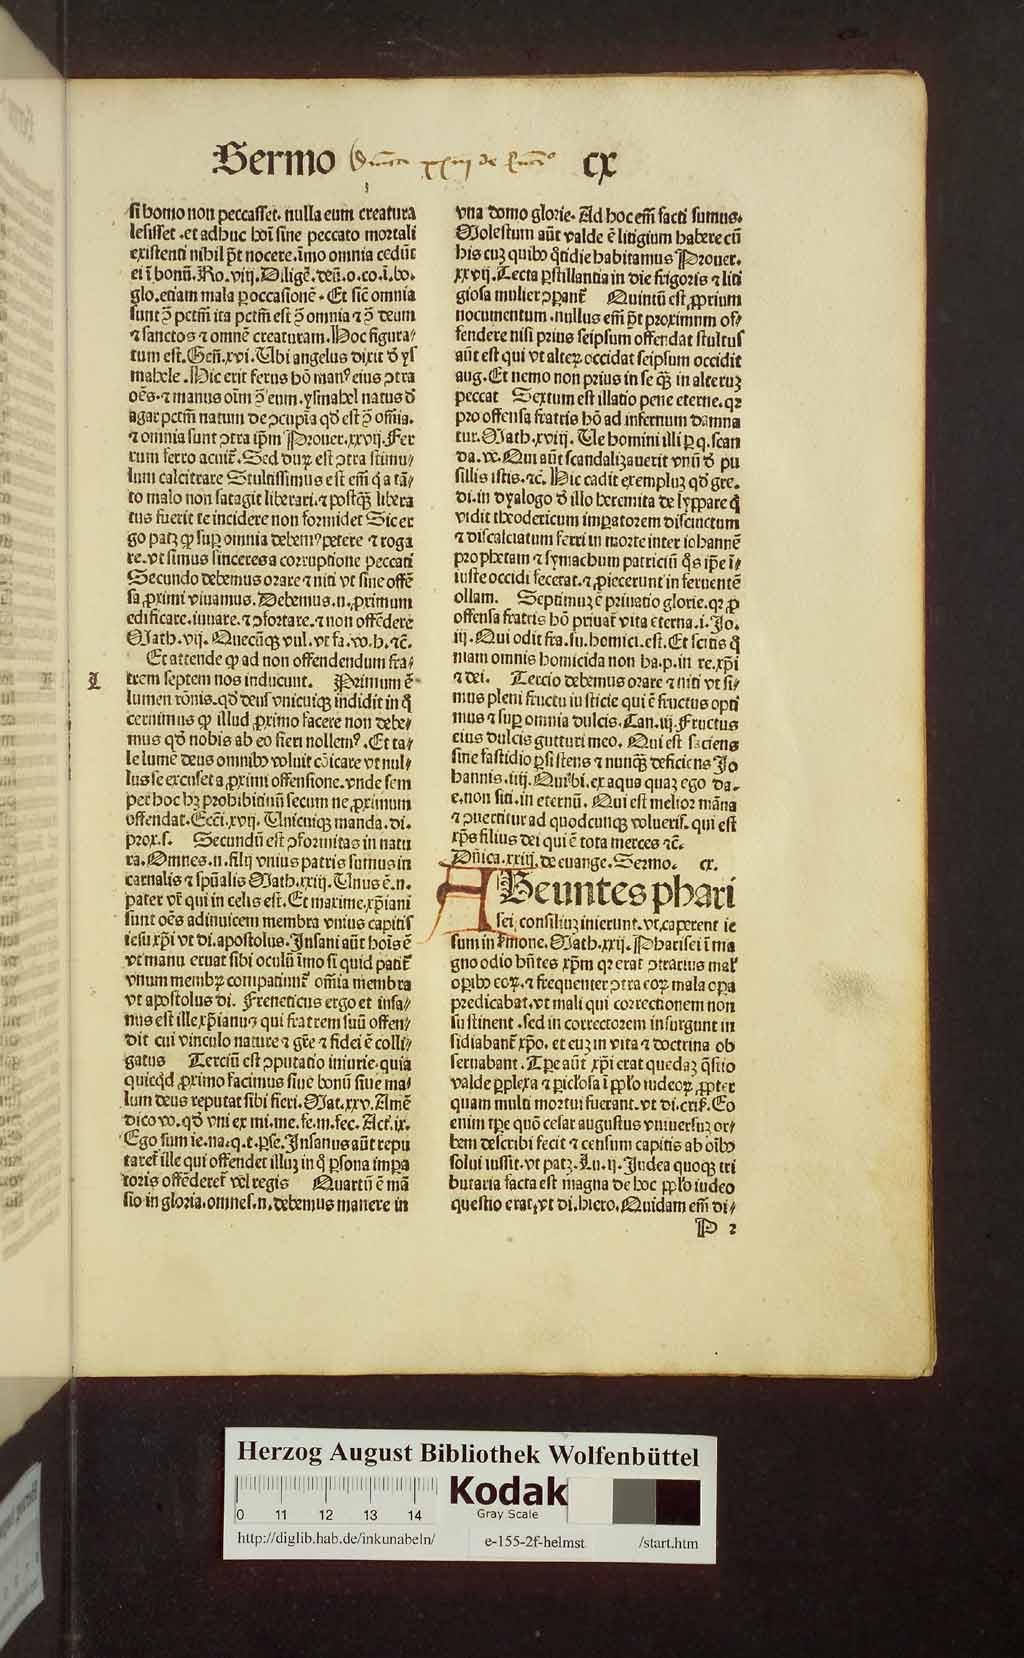 Sermo Dnica xxiij de Euange CX
si homo non peccasset. nulla eum creatura
lesisset .et adhuc hoī sine peccato mortali
existenti nihil p̄t nocere.īmo omnia cedūt
ei ī bonū.Ro.viij.Diligē.deū.o.co.ī.bo.
glo.etiam mala ꝑ occasionē. Et sic̄ omnia
sunt ꝯ̄ pctm̄ ita pctm̄ est ꝯ̄ omnia ⁊ ꝯ̄ deum
⁊ sanctos ⁊ omnē creaturam.Hoc figura⸗
tum est.Gen̄.xvi.Ubi angelus dixit đ ys
mahele.Hic erit ferus hō manꝰ eius ꝯtra
oēs.⁊ manus oīm ꝯ̄ eum.ysmahel natus đ
agar pctm̄ natum de ꝯcupīa qđ est ꝯ̄ om̄ia.
⁊ omnia sunt ꝯtra ip̄m Prouer.xxvij.Fer
rum ferro acuit̄.Sed duꝝ est ꝯtra stimu⸗
lum calcitrare Stultissimus est em̄ q̇ a tā⸗
to malo non satagit liberari.⁊ postqꝫ̄ libera
tus fuerit te incidere non formidet Sic er
go patꝫ ꝙ sup̄ omnia debemꝰ petere ⁊ roga
re.vt simus sinceres a corruptione peccati
Secundo debemus orare ⁊ niti vt sine offē
sa ꝓximi viuamus.Debemus.n.ꝓximum
edificare.iuuare.⁊ ꝯfortare.⁊ non offēdere
Math.vij.Quecūqꝫ vul.vt fa.vo.h.⁊c̄.
Et attende ꝙ ad non offendendum fra⸗
L trem septem nos inducunt. Primum ē
lumen rōnis.qđ deus vnicuiqꝫ indidit in q̊
cernimus ꝙ illud ꝓximo facere non debe⸗
mus qđ nobis ab eo fieri nollemꝰ.Et ta⸗
le lumē deus omnibꝰ voluit cōicare vt nul⸗
lus se excuset a ꝓximi offensione.vnde sem
per hoc hꝫ prohibitiuū secum ne ꝓximum
offendat.Ecci.xvij.Unicuiqꝫ manda.di.
prox.s. Secundū est ꝯformitas in natu
ra.Omnes.n.filij vnius patris sumus in
carnalis ⁊ spūalis Math.xxiij.Unus ē.n.
pater vr̄ qui in celis est.Et maxime.xp̄iani
sunt oēs adinuicem membra vnius capitis
iesu xp̄i vt di.apostolus.Insani aūt hoīs ē
vt manu eruat sibi oculū īmo si quid patit̄
vnum membꝝ compatiunt̄ om̄ia membra
vt apostolus di. Freneticus ergo et insa⸗
nus est ille xp̄ianus qui fratrem suū offen⸗
dit cui vinculo nature ⁊ gr̄e ⁊ fidei ē colli⸗
gatus Terciū est ꝯputatio iniurie.quia
quicqđ ꝓximo facimus siue bonū siue ma⸗
lum deus reputat sibi fieri.Mat.xxv.Amē
dico vo.qđ vni ex mi.me.fe.m.fec.Act.ix.
Ego sum ie.na.q.t.ꝑse.Insanus aūt repu
taret̄ ille qui offendet illuꝫ in q̊ ꝑsona impa
toris offēderet̄ vel regis Quartū ē mā
sio in gloria.omnes.n.debemus manere in
vna domo glorie.Ad hoc em̄ facti sumus.
Molestum aūt valde ē litigium habere cū
his cuꝫ quibꝰ q̄tidie habitamus Prouer.
xxvij.Tecta ꝑstillantia in die frigoris ⁊ liti
giosa mulier ꝯparant̄ Quintū est ꝓprium
nocumentum.nullus em̄ p̄t proximum of⸗
fendere nisi prius seipsum offendat stultus
aūt est qui vt alterꝫ occidat seipsum occidit
aug.Et nemo non prius in se qꝫ̄ in alteruꝫ
peccat Sextum est illatio pene eterne.qꝛ
pro offensa fratris hō ad infernum damna
tur.Math.xviij.Ue homini illi ꝑ q.scan
da.ve.Qui aūt scandalizauerit vnū đ pu
sillis istis.⁊c̄.Hic cadit exempluꝫ qđ gre.
di.in dyalogo đ illo heremita de lyppare q̇
vidit theodericum impatorem discinctum
⁊ discalciatum ferri in morte inter iohannē
prophetam ⁊ symachum patriciū q̊s ip̄e ī⸗
iuste occidi fecerat.⁊ ꝓiecerunt in feruentē
ollam. Septimuꝫ ē priuatio glorie.qꝛ ꝓ
offensa fratris hō priuat̄ vita eterna.i.Jo.
iij.Qui odit fra.su.homici.est.Et scitis q̄
niam omnis homicida non ha.p.in re.xp̄i
⁊ dei. Tercio debemus orare ⁊ niti vt si⸗
mus pleni fructu iusticie qui ē fructus opti
mus ⁊ sup̄ omnia dulcis.Can.iij.Fructus
eius dulcis gutturi meo.Qui est saciens
sine fastidio ꝑsistens ⁊ nunqꝫ̄ deficiens Jo
hannis.iiij.Qui bi.ex aqua quaꝫ ego da.
e.non siti.in eternū.Qui est melior māna
⁊ ꝯuertitur ad quodcunqꝫ volueris.qui est
xp̄s filius dei qui ē tota merces ⁊c̄.
Dn̄ica.xxiij.de euange.Sermo. cx.
ABeuntes phari
sei consiliuꝫ inierunt.vt caperent ie
sum in sermone.Math.xxij.Pharisei ī ma
gno odio hn̄tes xp̄m qꝛ erat ꝯtrarius mal̄
opibꝰ eoꝝ.⁊ frequenter ꝯtra eoꝝ mala opa
predicabat.vt mali qui correctionem non
sustinent.sed in correctorem insurgunt in
sidiabant̄ xp̄o.et euꝫ in vita ⁊ doctrina ob
seruabant.Tp̄e aūt xp̄i erat quedaꝫ q̄stio
valde ꝑplexa ⁊ pic̄losa ī pplo iudeoꝝ.ꝓpter
quam multi mortui fuerant.vt di.cris̄.Eo
enim tp̄e quō cesar augustus vniuersuꝫ or⸗
bem describi fecit ⁊ censum capitis ab oībꝰ
solui iussit.vt patꝫ.Lu.ij.Judea quoqꝫ tri
butaria facta est magna de hoc pplo iudeo
questio erat.vt di.hiero.Quidam em̄ di⸗
P 2
Herzog August Bibliothek Wolfenbüttel
0 11 12 13 14
Kodak
Gray Scale
http://diglib.hab.de/inkunabeln/ e-155-2f-helmst /start.htm